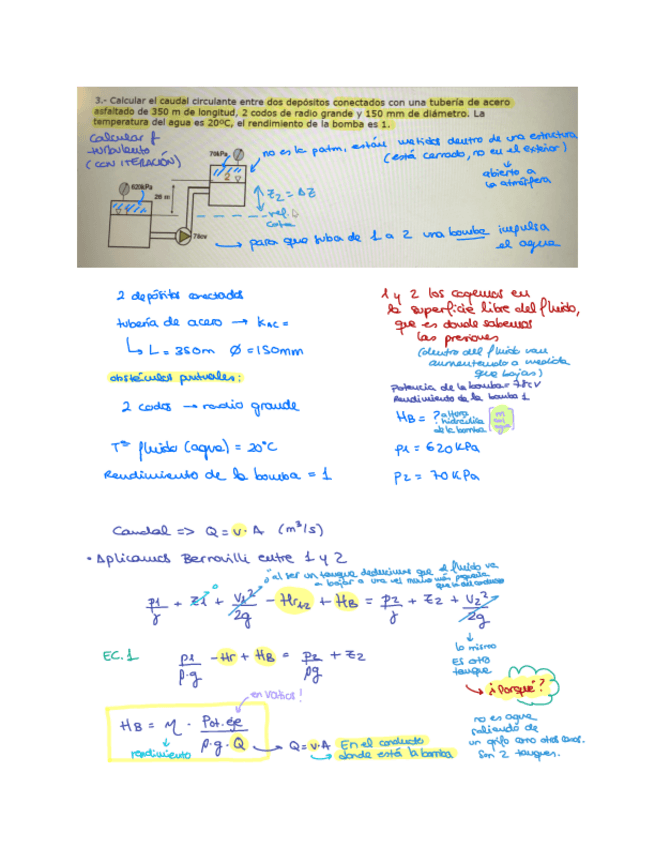 3.- Calcular el caudal circulante entre dos depósitos conectados con una tubería de acero
asfaltado de 350 m de longitud, 2 codos de radio grande y 150 mm de diámetro. La
temperatura del agua es 20ºC, el rendimiento de la bomba es 1.
calcular f
→turbulento
(CON ITERACIÓN)
70kPa
no es la patm, están metidos dentro de una estructura
(está cerrado, no en el exterior)
abierto a
la atmósfera
2
620kPa
1
26 m
Z2 = ΔZ
ref.
cota
75cv
→ para que suba de 1 a 2 una bomba impulsa
el agua
2 depósitos conectados
tubería de acero → KAC =
L = 350m Ø = 150mm
obstáculos puntuales:
2 codos → radio grande
Tª fluido (agua) = 20°C
Rendimiento de la bomba = 1
1 y 2 los cogemos en
la superficie libre del fluido,
que es donde sabemos
las presiones
(dentro del fluido van
aumentando a medida
que bajas)
Potencia de la bomba= 75cv
Rendimiento de la bomba 1
HB = ? altura
hidráulica
de la bomba
p1 = 620 kPa
p2 = 70 KPa
Caudal => Q = v · A (m³/s)
• Aplicamos Bernoulli entre 1 y 2
al ser un tanque deducimos que el fluido va
a bajar a una vel. mucho más pequeña
p1/γ + z1 + v1²/2g - Hr1,2 + HB = p2/γ + z2 + v2²/2g
0
lo mismo
es otro
tanque
¿Porqué?
EC.1
p1/ρ·g - Hr + HB = p2/ρg + z2
en vatios!
HB = η · Pot.eje/ρ·g·Q
rendimiento
Q = v·A En el conducto
donde está la bomba
no es agua
saliendo de
un grifo como otras cosas.
son 2 tanques.